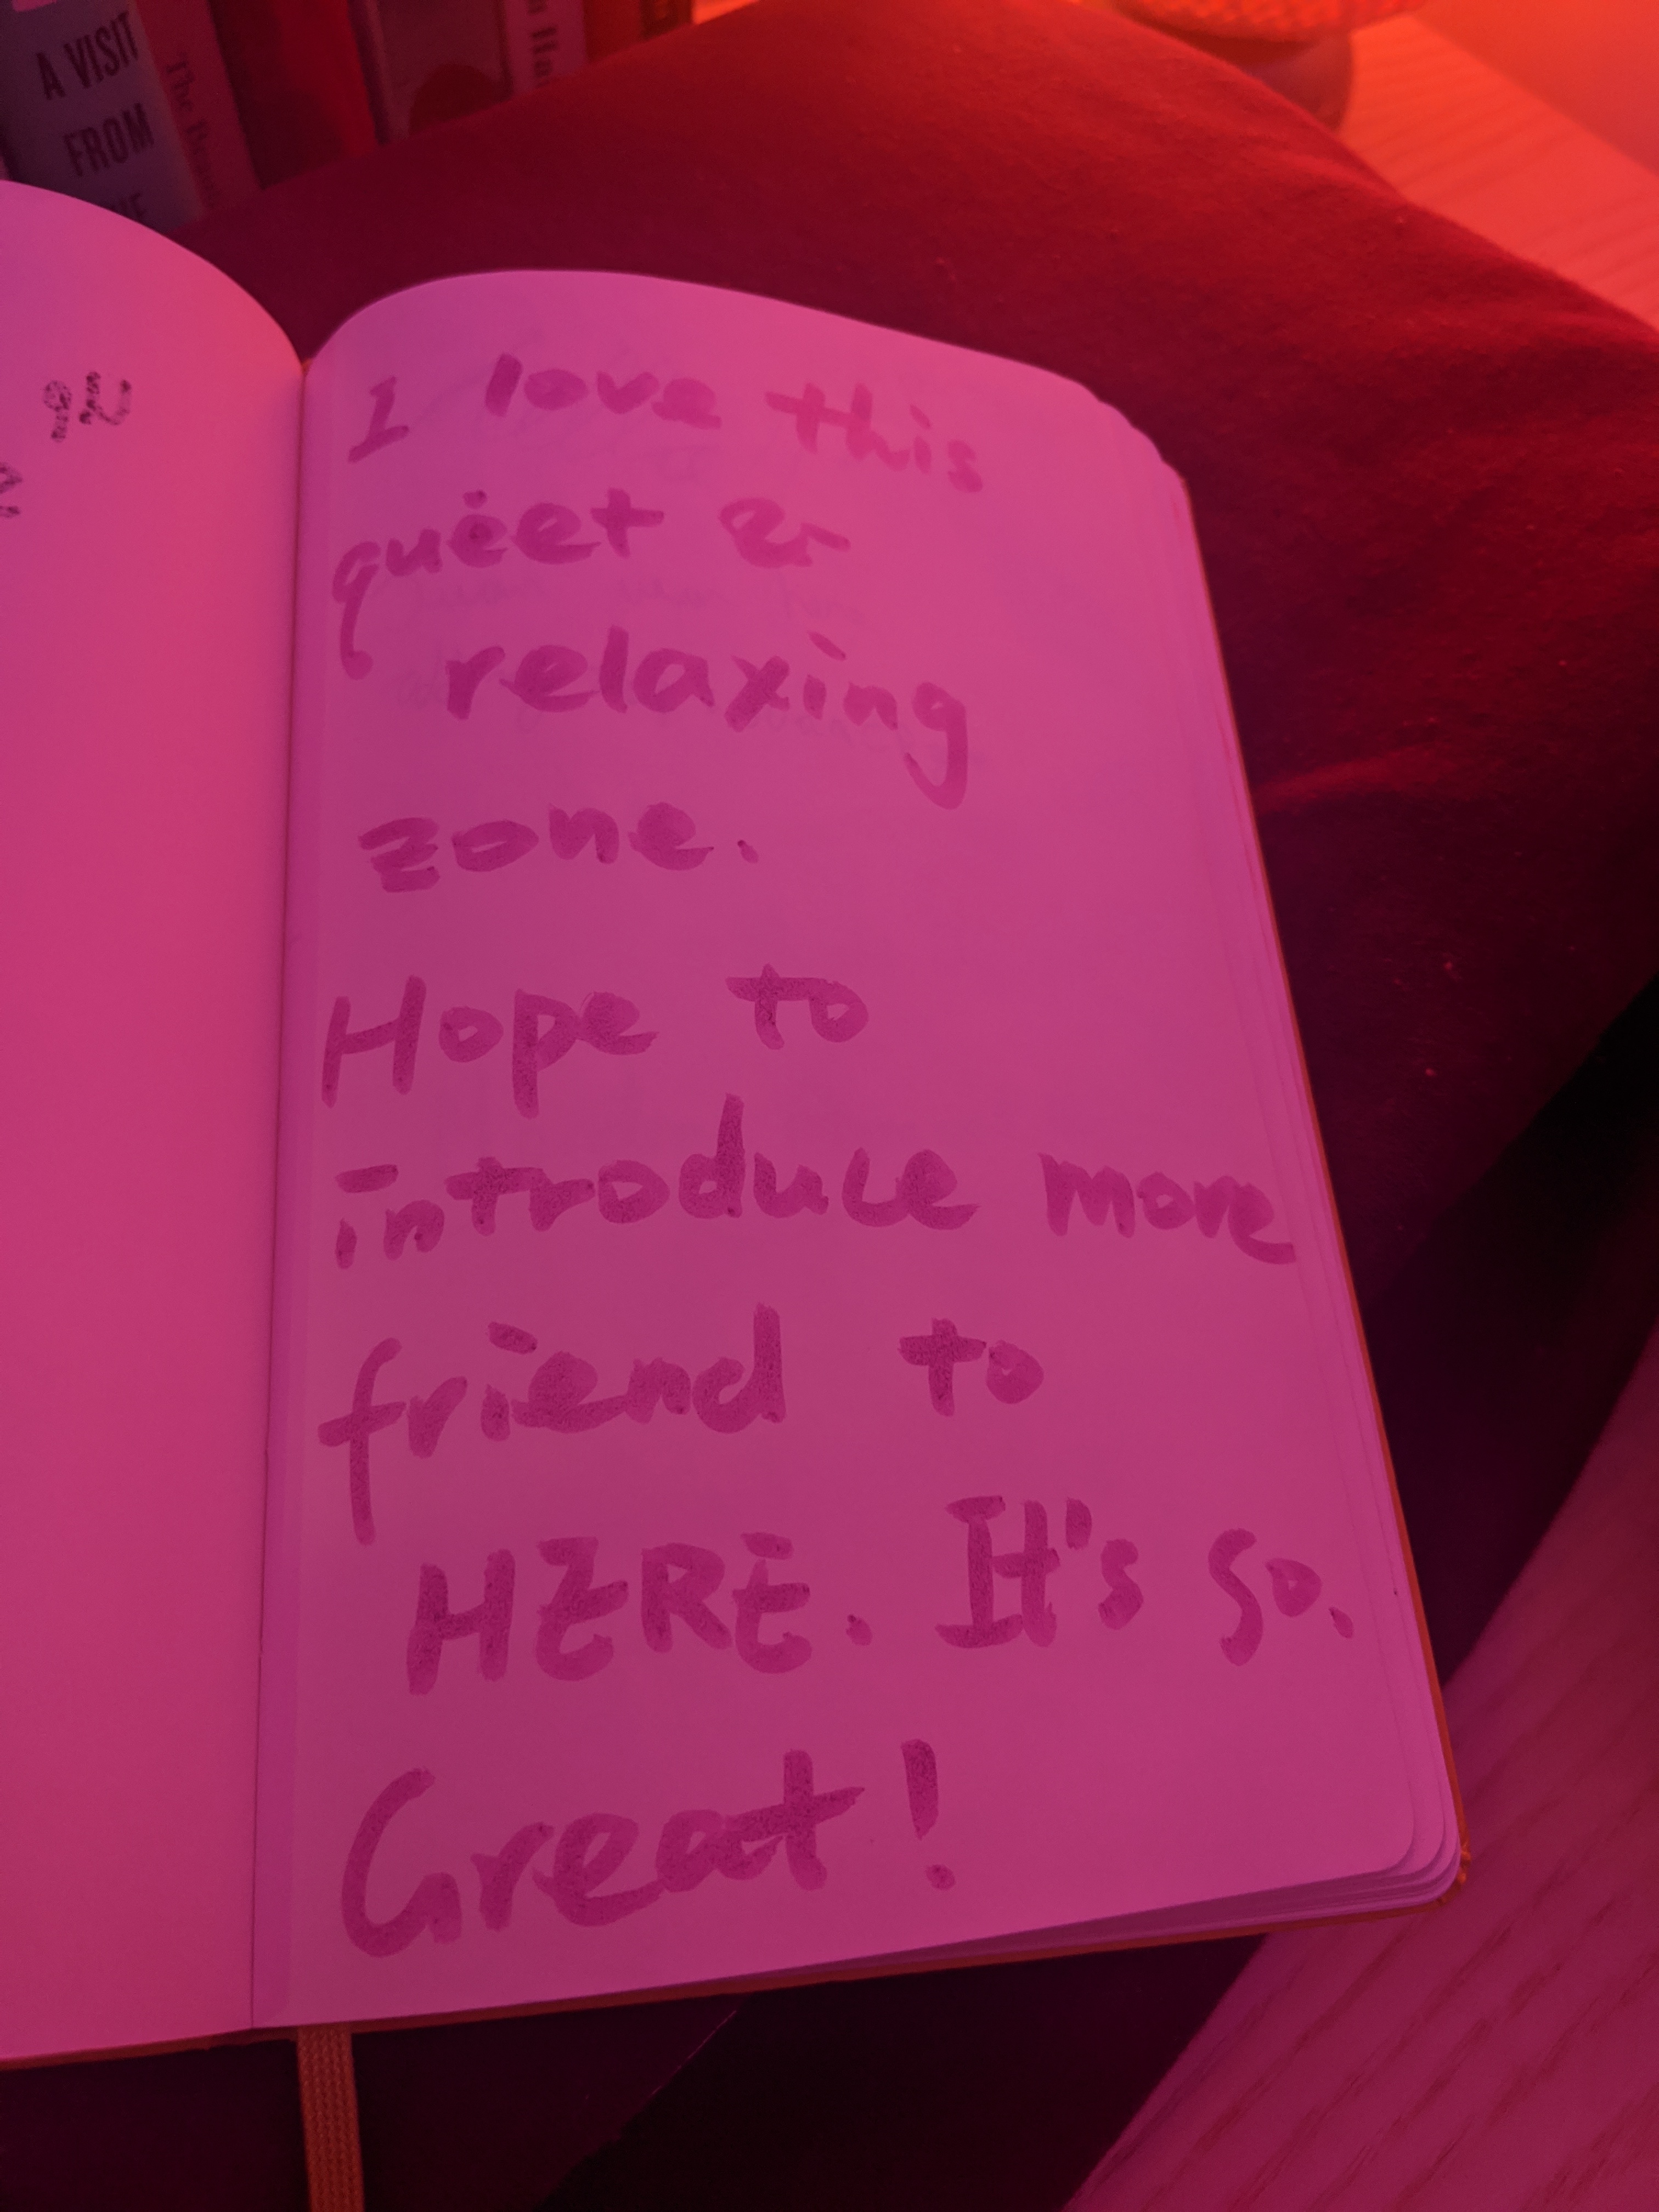 A VISIT
FROM
The B
I love this
quiet &
relaxing
zone.
Hope to
introduce more
friend to
HERE. It's so.
Great!